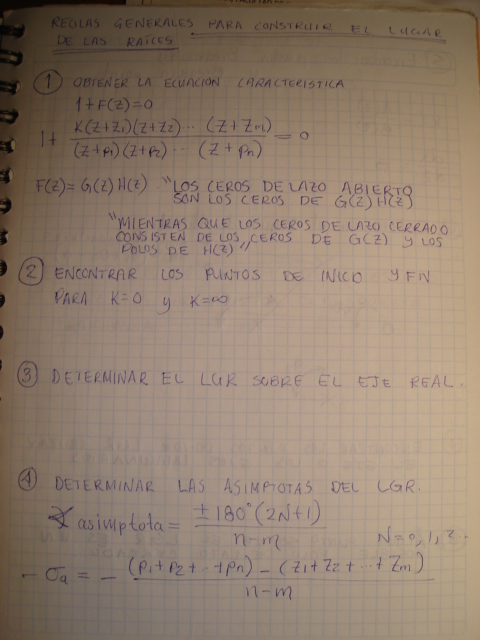 REGLAS GENERALES PARA CONSTRUIR EL LUGAR
DE LAS RAÍCES
1 OBTENER LA ECUACION CARACTERISTICA
1+F(Z)=0
1+ K(Z+Z1)(Z+Z2)...(Z+Zm) / (Z+p1)(Z+p2)...(Z+pn) = 0
F(Z)= G(Z)H(Z) "LOS CEROS DE LAZO ABIERTO
SON LOS CEROS DE G(Z)H(Z)
"MIENTRAS QUE LOS CEROS DE LAZO CERRADO
CONSISTEN DE LOS CEROS DE G(Z) Y LOS
POLOS DE H(Z)"
2 ENCONTRAR LOS PUNTOS DE INICIO Y FIN
PARA K=0 y K=∞
3 DETERMINAR EL LGR SOBRE EL EJE REAL.
4 DETERMINAR LAS ASIMPTOTAS DEL LGR.
∠ asimptota = ±180°(2N+1) / n-m
N=0,1,2..
- σa = - (p1+p2+...+pn) - (Z1+Z2+...+Zm) / n-m